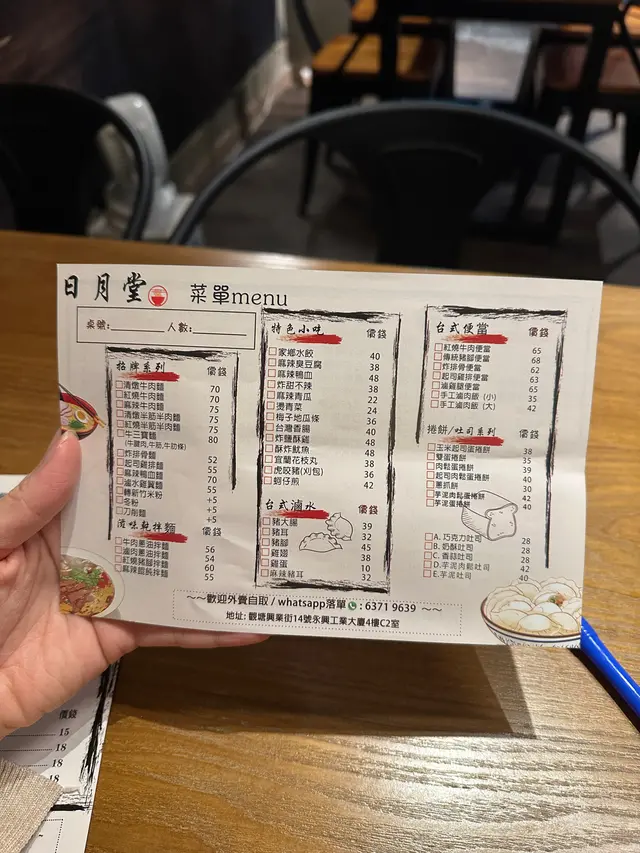 日月堂 菜單menu
桌號:________ 人數:________
招牌系列 價錢
清燉牛肉麵 70
紅燒牛肉麵 70
麻辣牛肉麵 75
清燉半筋半肉麵 75
紅燒半筋半肉麵 75
牛三寶麵 80
(牛腱肉,牛筋,牛肋條)
炸排骨麵 52
起司雞排麵 55
麻辣鴨血麵 50
滷水雞翼麵 55
轉新竹米粉 +5
冬粉 +5
刀削麵 +5
滇味乾拌麵 價錢
牛肉蔥油拌麵 56
滷肉蔥油拌麵 54
紅燒豬腳拌麵 60
麻辣餛飩拌麵 55
特色小吃 價錢
家鄉水餃 40
麻辣臭豆腐 38
麻辣鴨血 48
炸甜不辣 38
麻辣青瓜 22
燙青菜 24
梅子地瓜條 36
台灣香腸 40
炸鹽酥雞 48
酥炸魷魚 38
宜蘭花枝丸 38
虎咬豬(刈包) 36
蚵仔煎 42
台式滷水 價錢
豬大腸 39
豬耳 32
豬腳 45
雞翅 38
雞蛋 10
麻辣豬耳 32
台式便當 價錢
紅燒牛肉便當 65
傳統豬腳便當 68
炸排骨便當 62
起司雞排便當 63
滷雞腿便當 65
手工滷肉飯 (小) 35
手工滷肉飯 (大) 42
捲餅/吐司系列 價錢
玉米起司蛋捲餅 38
雙蛋捲餅 35
肉鬆蛋捲餅 39
起司肉鬆蛋捲餅 40
蔥抓餅 30
芋泥肉鬆蛋捲餅 42
芋泥蛋捲餅 40
A. 巧克力吐司 28
B. 奶酥吐司 28
C. 香蒜吐司 28
D. 芋泥肉鬆吐司 42
E. 芋泥吐司 40
～～歡迎外賣自取 / whatsapp落單 : 6371 9639 ～～
地址: 觀塘興業街14號永興工業大廈4樓C2室
價錢
15
18
18
18